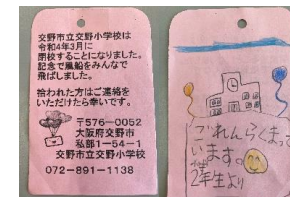 交野市立交野小学校は
令和4年3月に
閉校することになりました。
記念で風船をみんなで
飛ばしました。
拾われた方はご連絡を
いただけたら幸いです。
〒576-0052
大阪府交野市
私部1-54-1
交野市立交野小学校
072-891-1138
ごれんらくまって
います。
2年生より